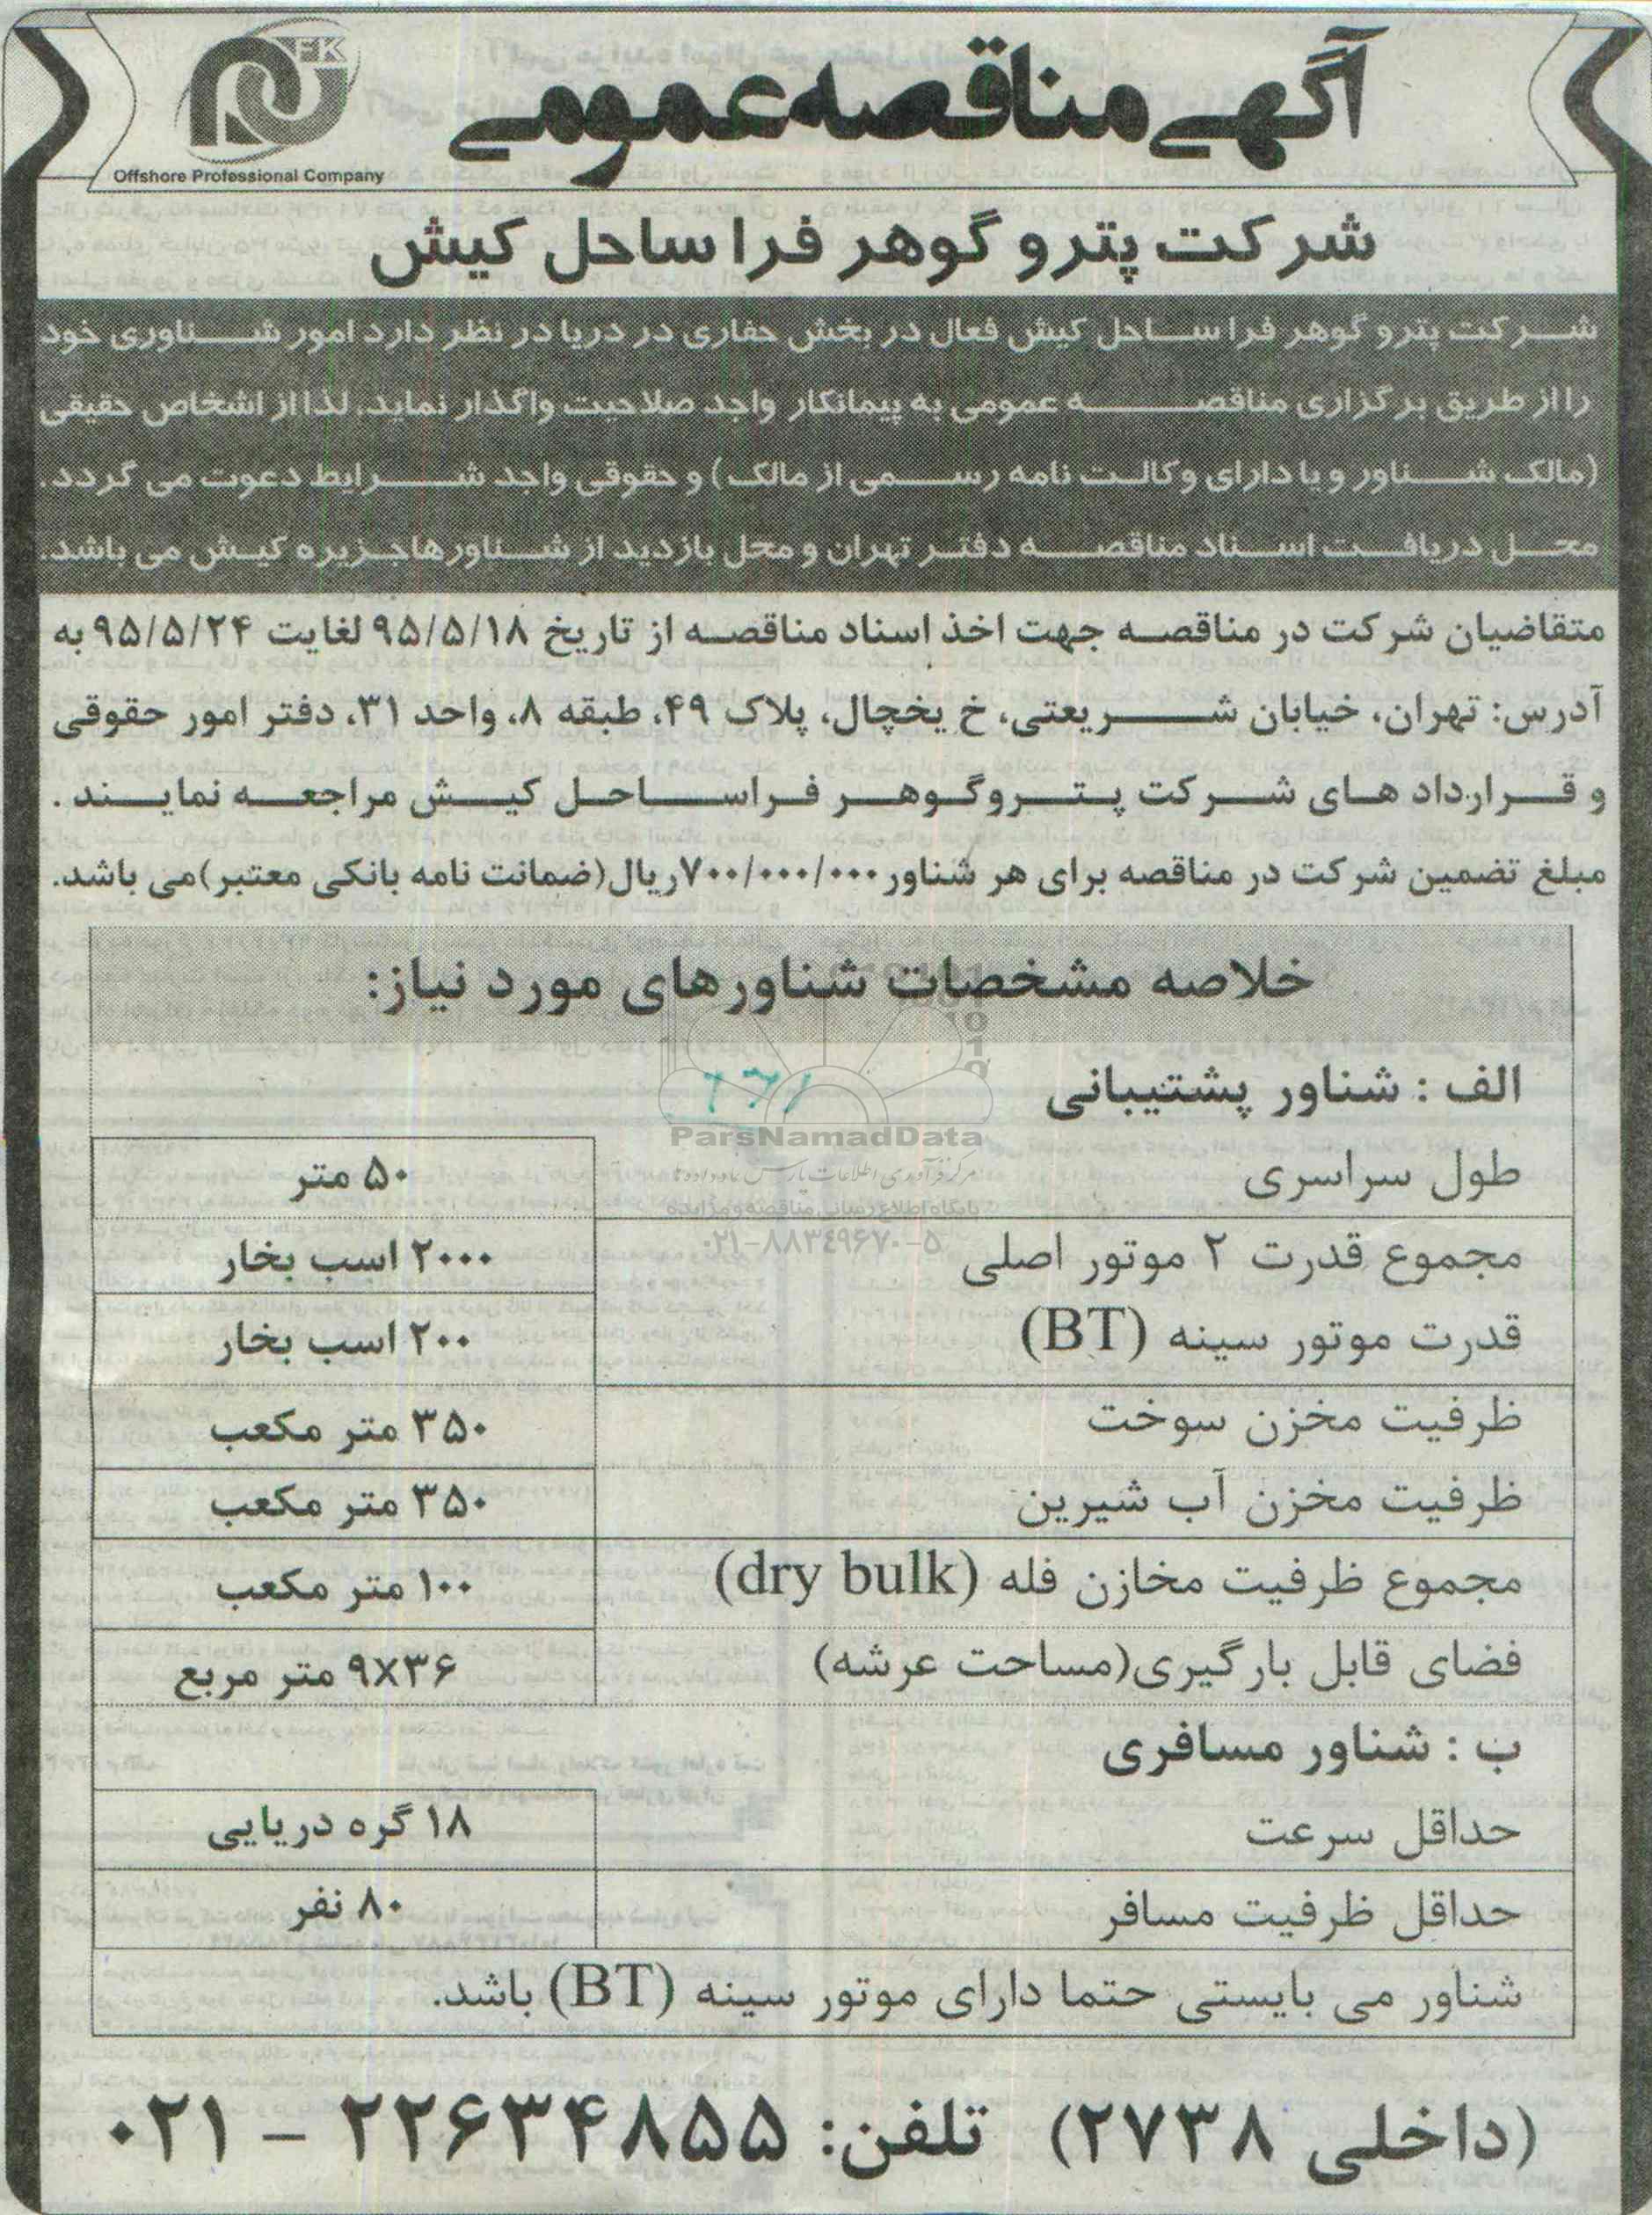 آگهی مناقصه عمومی
PFK
Offshore Professional Company
شرکت پترو گوهر فرا ساحل کیش
شرکت پترو گوهر فرا ساحل کیش فعال در بخش حفاری در دریا در نظر دارد امور شناوری خود
را از طریق برگزاری مناقصه عمومی به پیمانکار واجد صلاحیت واگذار نماید. لذا از اشخاص حقیقی
(مالک شناور و یا دارای وکالت نامه رسمی از مالک) و حقوقی واجد شرایط دعوت می گردد.
محل دریافت اسناد مناقصه دفتر تهران و محل بازدید از شناورها جزیره کیش می باشد.
متقاضیان شرکت در مناقصه جهت اخذ اسناد مناقصه از تاریخ ۹۵/۵/۱۸ لغایت ۹۵/۵/۲۴ به
آدرس: تهران، خیابان شریعتی، خ یخچال، پلاک ۴۹، طبقه ۸، واحد ۳۱، دفتر امور حقوقی
و قراردادهای شرکت پتروگوهر فراساحل کیش مراجعه نمایند.
مبلغ تضمین شرکت در مناقصه برای هر شناور ۷۰۰/۰۰۰/۰۰۰ریال(ضمانت نامه بانکی معتبر)می باشد.
خلاصه مشخصات شناورهای مورد نیاز:
الف : شناور پشتیبانی
ParsNamadData
طول سراسری ۵۰ متر
پایگاه اطلاع رسانی مناقصه و مزایده
۰۲۱-۸۸۳۴۹۶۷۰-۵
مجموع قدرت ۲ موتور اصلی ۲۰۰۰ اسب بخار
قدرت موتور سینه (BT) ۲۰۰ اسب بخار
ظرفیت مخزن سوخت ۳۵۰ متر مکعب
ظرفیت مخزن آب شیرین ۳۵۰ متر مکعب
مجموع ظرفیت مخازن فله (dry bulk) ۱۰۰ متر مکعب
فضای قابل بارگیری(مساحت عرشه) ۹X۳۶ متر مربع
ب : شناور مسافری
حداقل سرعت ۱۸ گره دریایی
حداقل ظرفیت مسافر ۸۰ نفر
شناور می بایستی حتما دارای موتور سینه (BT) باشد.
(داخلی ۲۷۳۸) تلفن: ۲۲۶۳۴۸۵۵ - ۰۲۱